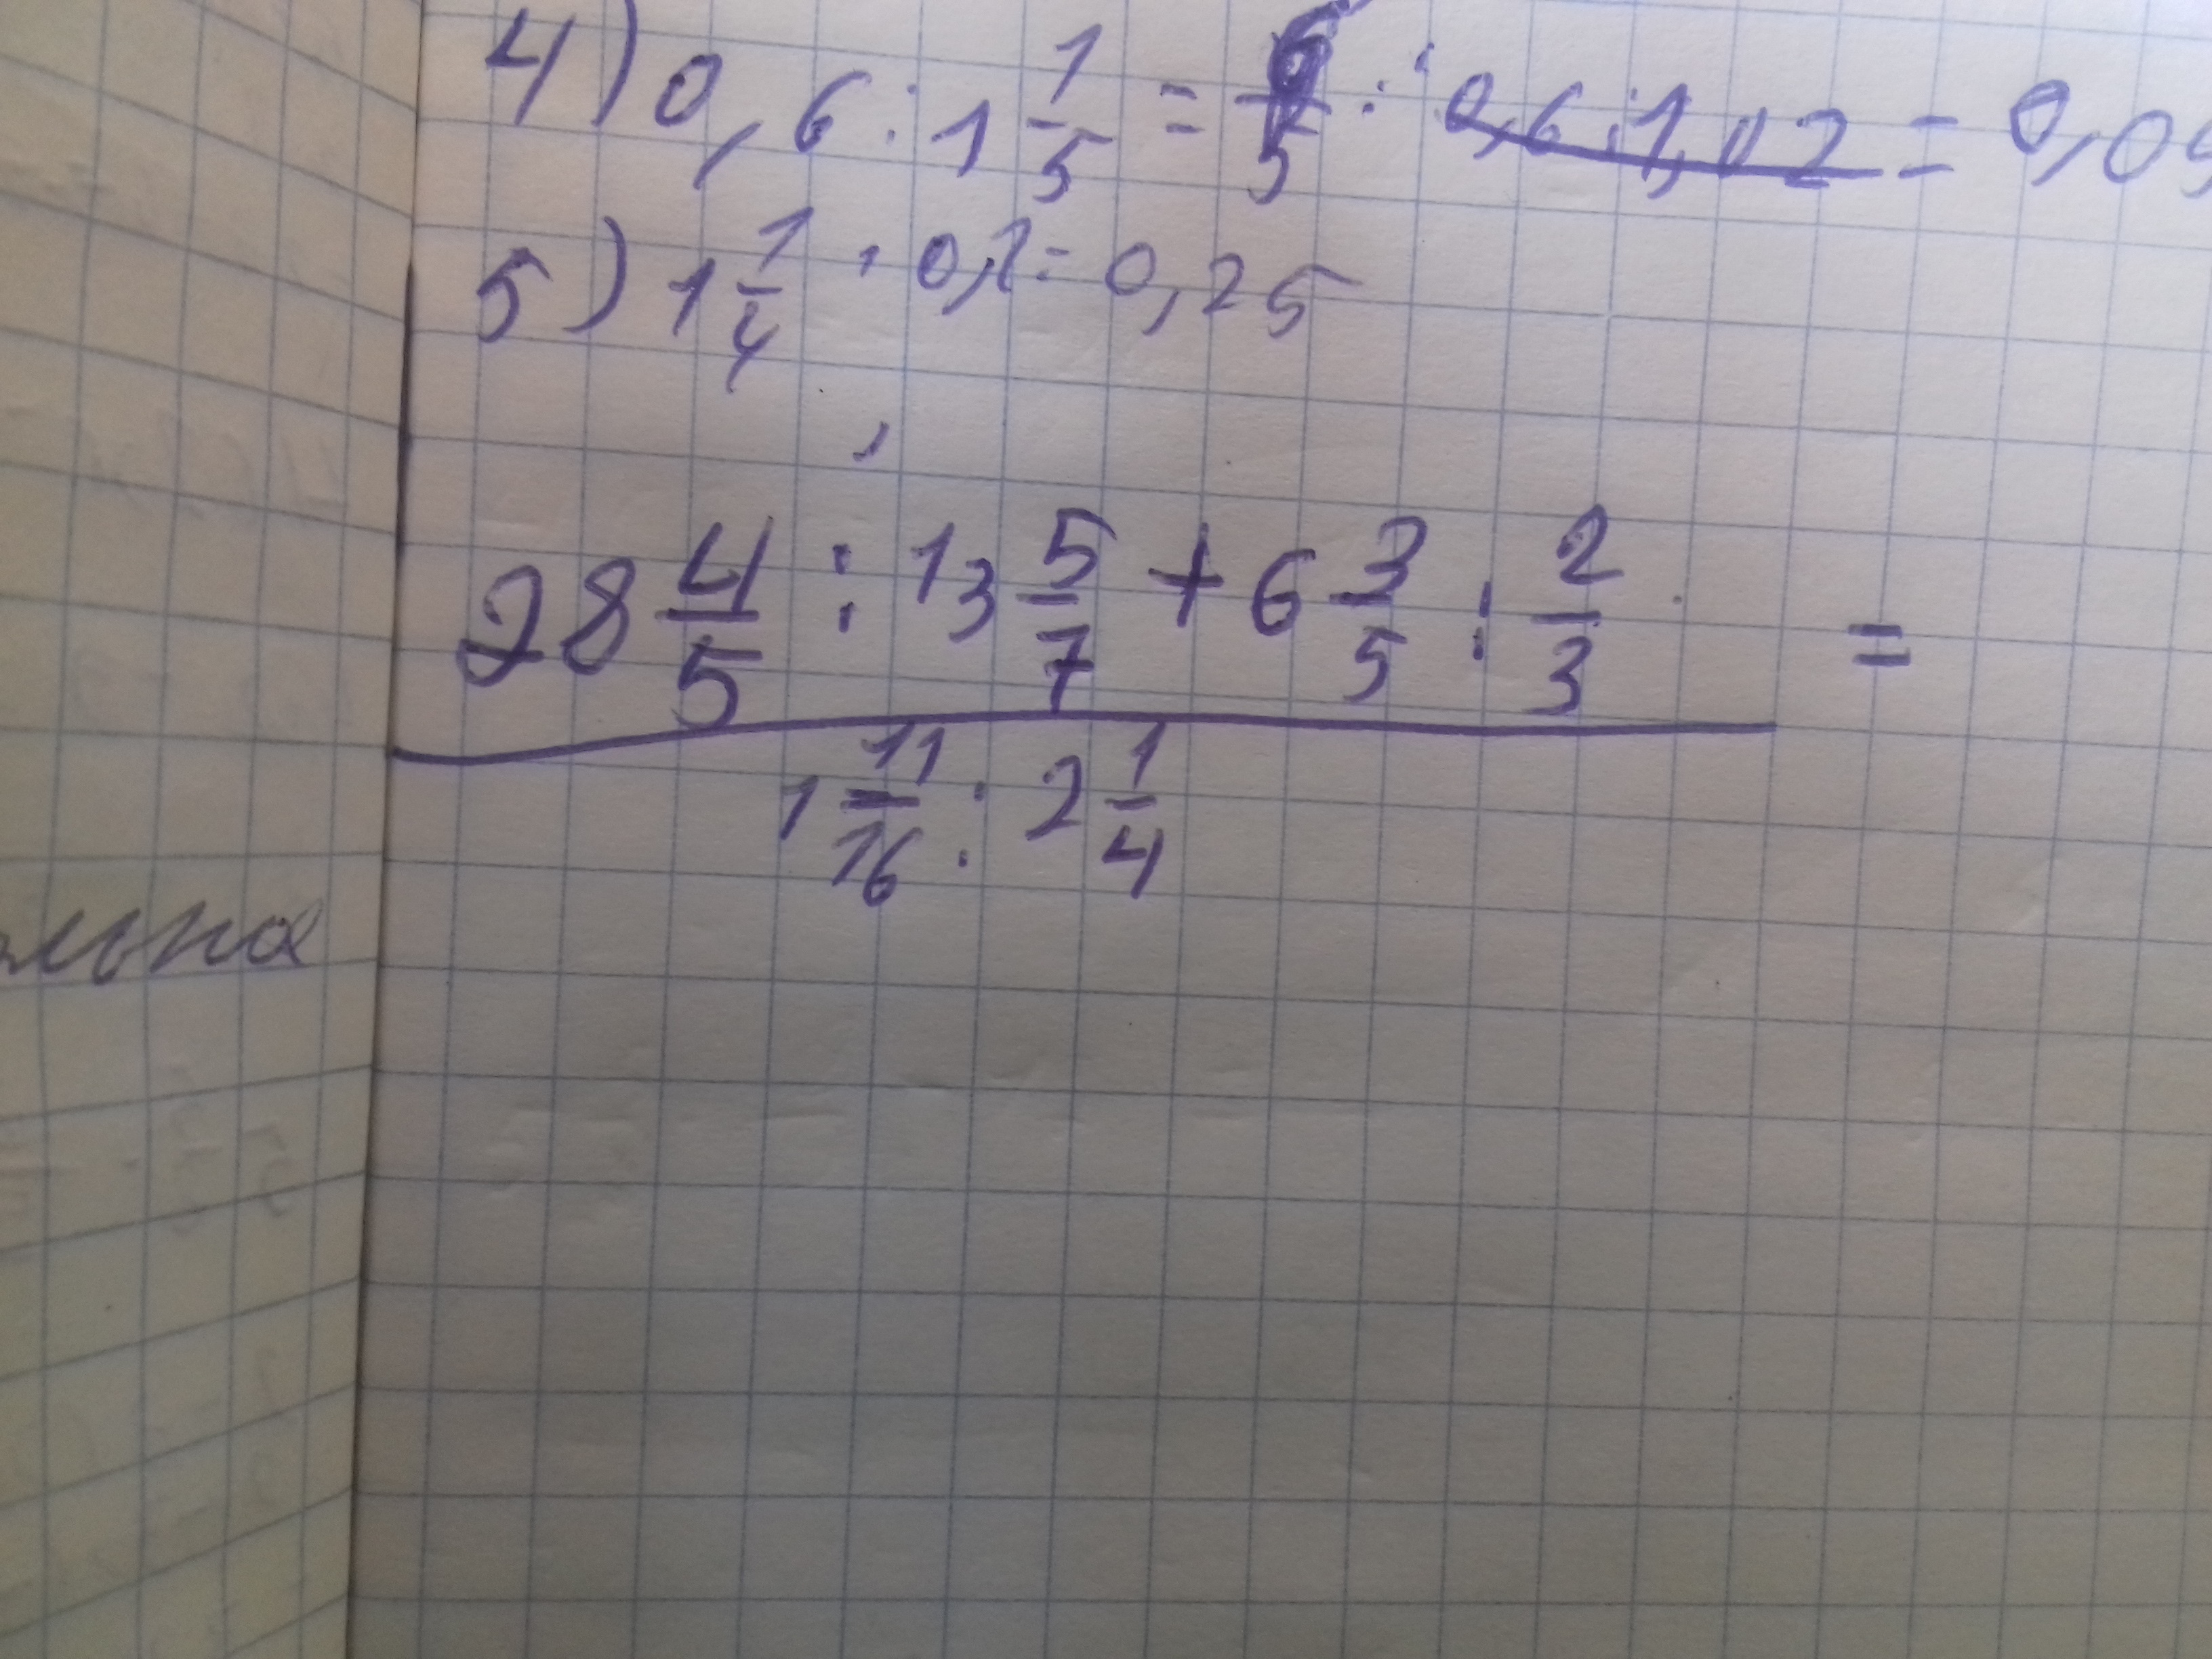 4) 0,6 : 1 1/5 = 6/5 : 0,6 : 1,02 = 0,0
5) 1 1/4 · 0,2 = 0,25
28 4/5 : 13 5/7 + 6 3/5 : 2/3 =
1 11/16 : 2 1/4
льна